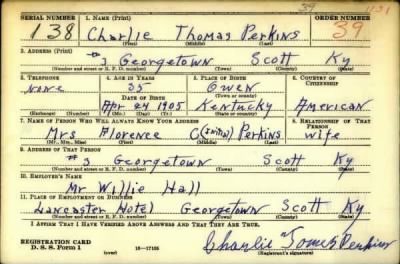 39 1131
SERIAL NUMBER 1. NAME (Print) ORDER NUMBER
138 Charlie Thomas Perkins 39
(First) (Middle) (Last)
2. ADDRESS (Print)
#3 Georgetown Scott Ky
(Number and street or R. F. D. number) (Town) (County) (State)
3. TELEPHONE 4. AGE IN YEARS 5. PLACE OF BIRTH 6. COUNTRY OF CITIZENSHIP
none 35 Owen
DATE OF BIRTH (Town or county)
Apr 24 1905 Kentucky American
(Exchange) (Number) (Mo.) (Day) (Yr.) (State or country)
7. NAME OF PERSON WHO WILL ALWAYS KNOW YOUR ADDRESS 8. RELATIONSHIP OF THAT PERSON
Mrs Florence C (initial) Perkins wife
(Mr., Mrs., Miss) (First) (Middle) (Last)
9. ADDRESS OF THAT PERSON
#3 Georgetown Scott Ky
(Number and street or R. F. D. number) (Town) (County) (State)
10. EMPLOYER'S NAME
Mr Willie Hall
11. PLACE OF EMPLOYMENT OR BUSINESS
Lancaster Hotel Georgetown Scott Ky
(Number and street or R. F. D. number) (Town) (County) (State)
I AFFIRM THAT I HAVE VERIFIED ABOVE ANSWERS AND THAT THEY ARE TRUE.
REGISTRATION CARD
D. S. S. FORM 1 (over) 16-17105
Charlie Tomes Perkins
(Registrant's signature)